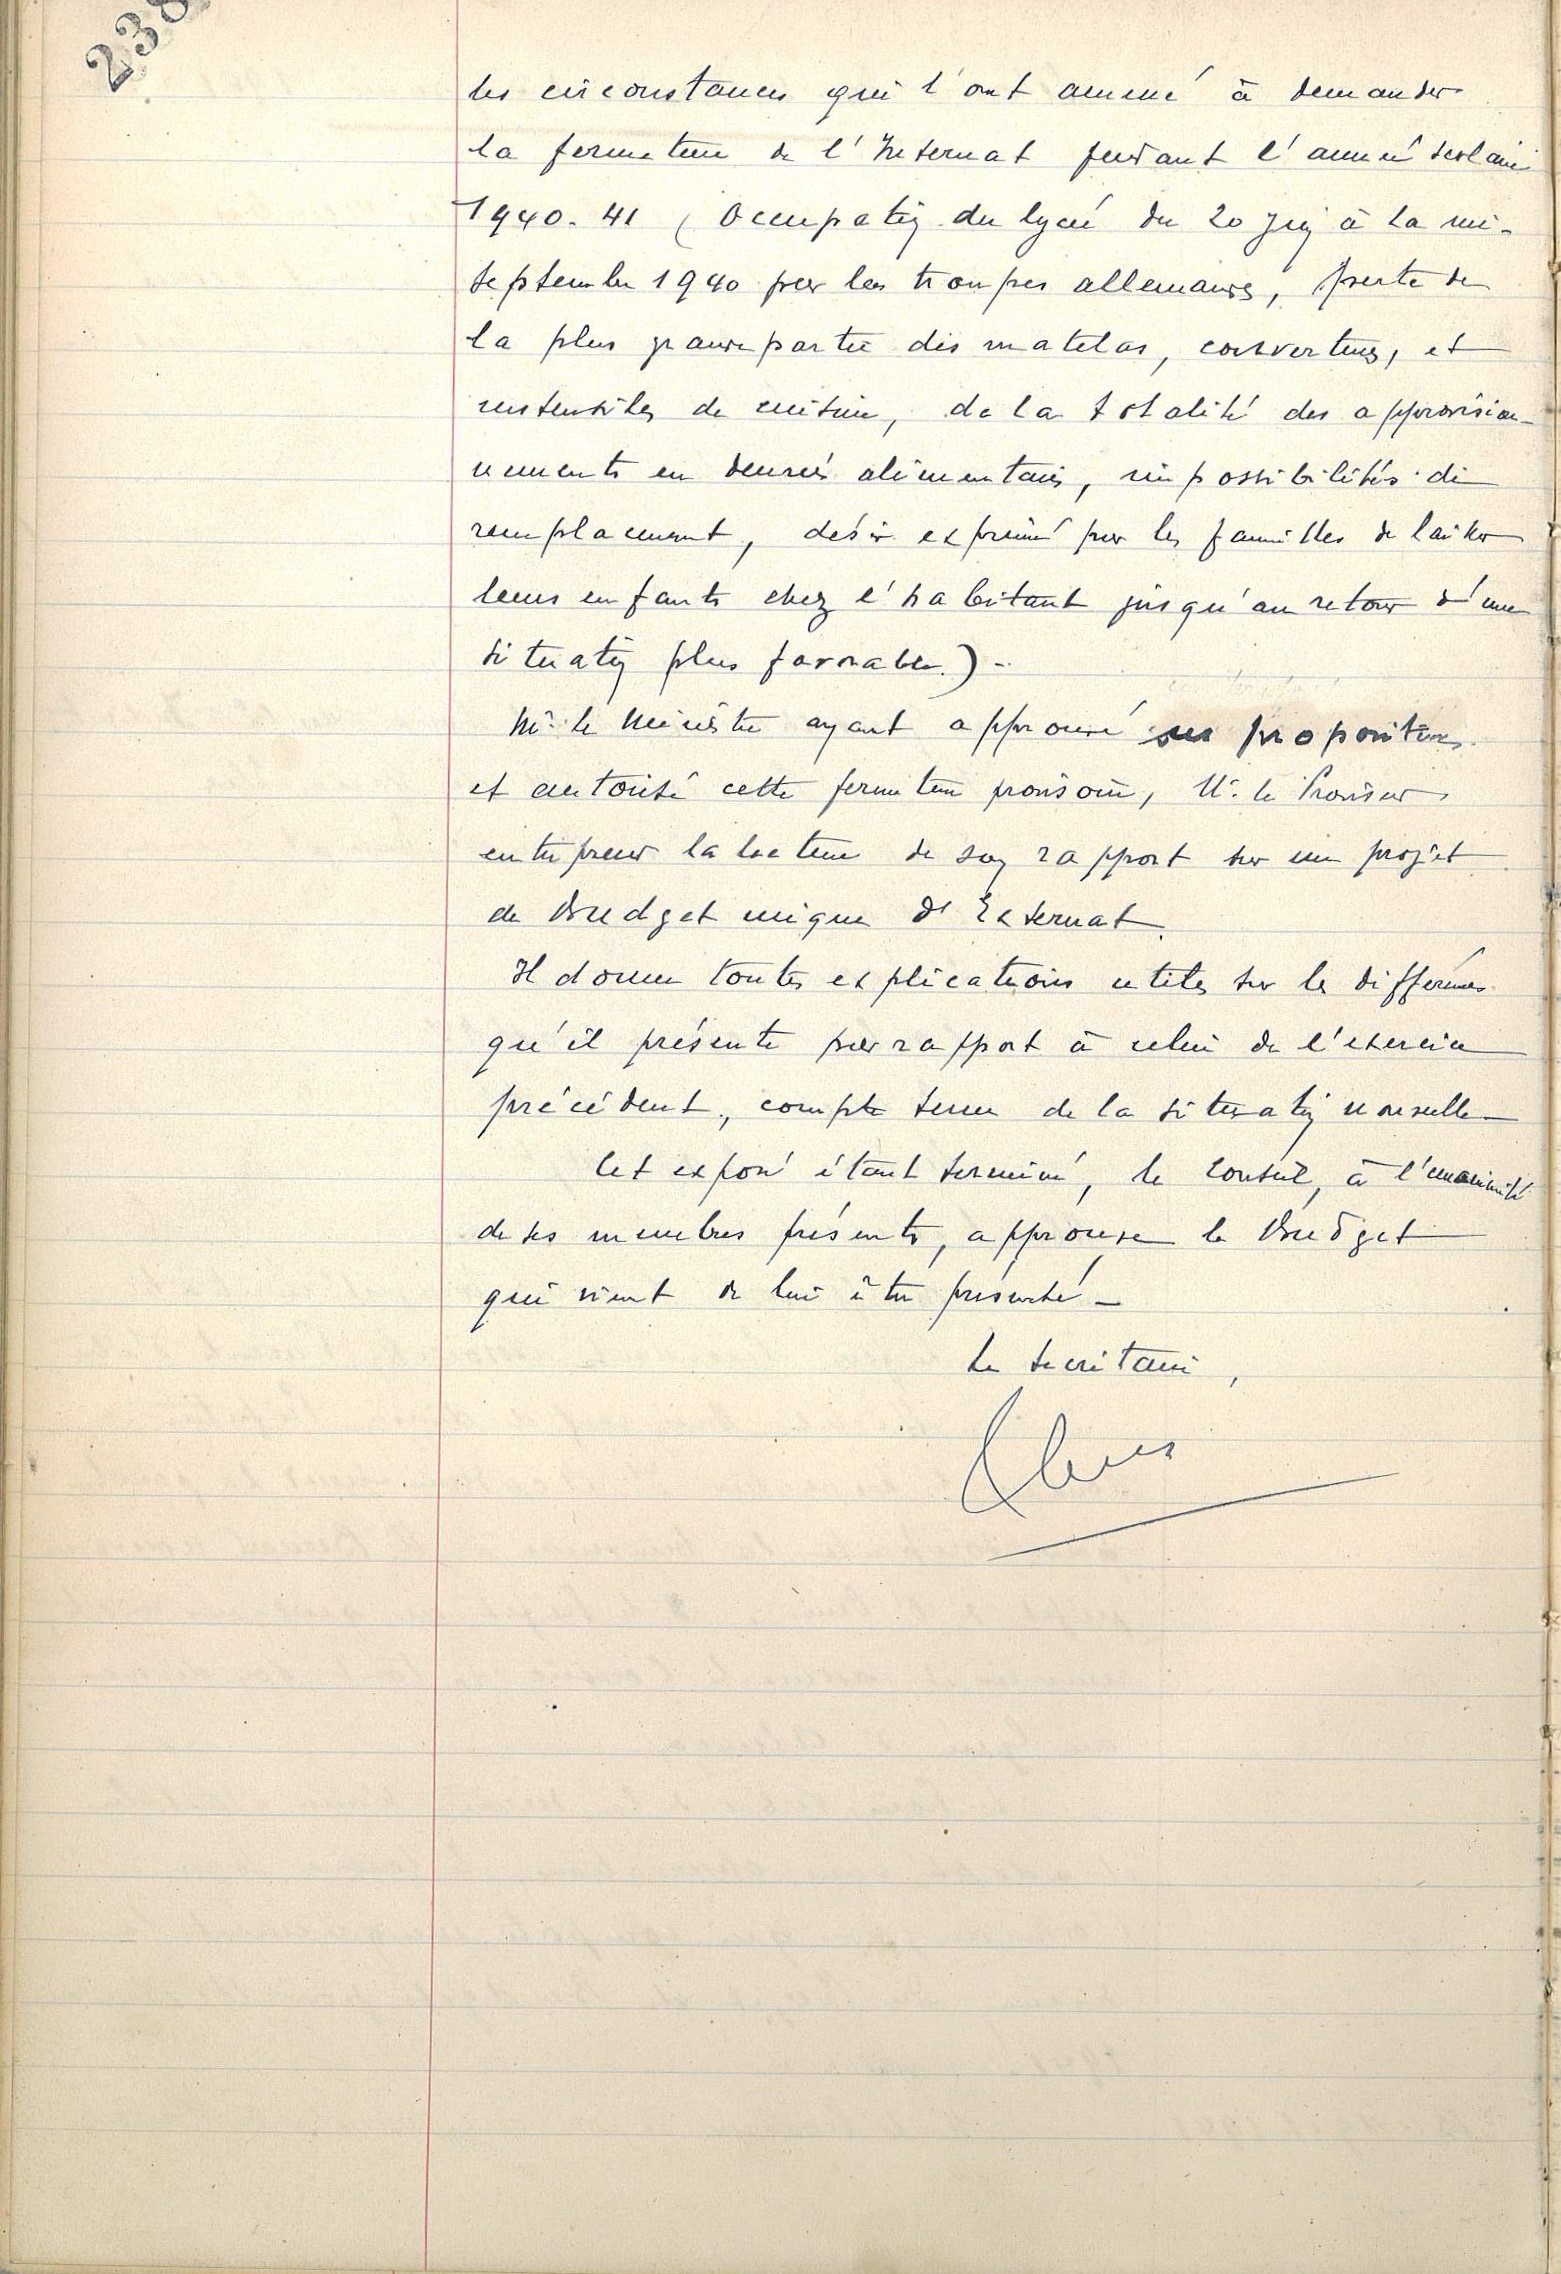 238
les circonstances qui l'ont amené à demander
la fermeture de l'Internat pendant l'année scolaire
1940-41 (Occupation du lycée du 20 Juin à la mi-
septembre 1940 par les troupes allemandes, perte de
la plus grande partie des matelas, couvertures, et
ustensiles de cuisine, de la totalité des approvision-
nements en denrées alimentaires, impossibilités de
remplacement, désir exprimé par les familles de laisser
leurs enfants chez l'habitant jusqu'au retour d'une
situation plus favorable.) -
Mr. le Ministre ayant approuvé ses propositions
et autorisé cette fermeture provisoire, Mr. le Proviseur
entreprend la lecture de son rapport sur un projet
de Budget unique d'Externat.
Il donne toutes explications utiles sur les différences
qu'il présente par rapport à celui de l'exercice
précédent, compte tenu de la situation nouvelle
Cet exposé étant terminé, le Conseil, à l'unanimité
de ses membres présents, approuve le Budget
qui vient de lui être présenté -
Le Secrétaire,